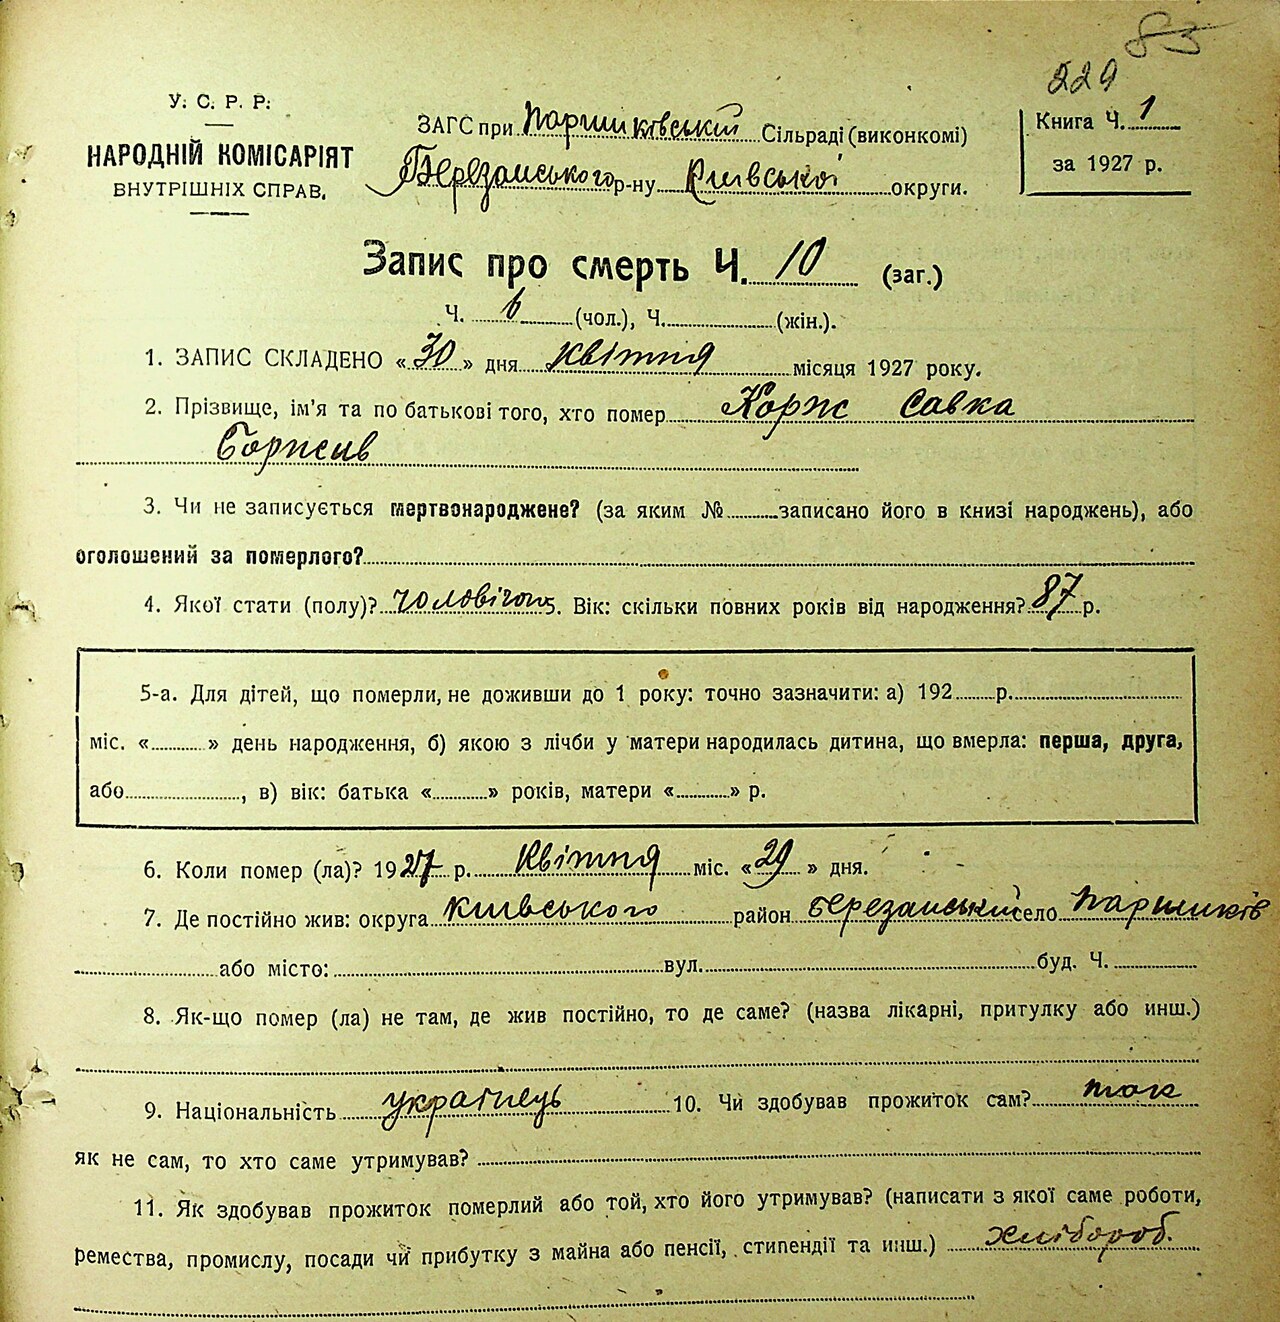 83
229
У. С. Р. Р.
НАРОДНІЙ КОМІСАРІЯТ
ВНУТРІШНІХ СПРАВ.
ЗАГС при Паришківській Сільраді (виконкомі)
Березанського р-ну Київської округи.
Книга Ч. 1
за 1927 р.
Запис про смерть Ч. 10 (заг.)
Ч. 6 (чол.), Ч. (жін.).
1. ЗАПИС СКЛАДЕНО «30» дня квітня місяця 1927 року.
2. Прізвище, ім'я та по батькові того, хто помер Корж Савка
Борисив
3. Чи не записується мертвонароджене? (за яким № записано його в книзі народжень), або
оголошений за померлого?
4. Якої стати (полу)? чоловічої 5. Вік: скільки повних років від народження? 87 р.
5-а. Для дітей, що померли, не доживши до 1 року: точно зазначити: а) 192 р.
міс. « » день народження, б) якою з лічби у матери народилась дитина, що вмерла: перша, друга,
або , в) вік: батька « » років, матери « » р.
6. Коли помер (ла)? 1927 р. Квітня міс. «29» дня.
7. Де постійно жив: округа київського район березанський село Паришків
або місто: вул. буд. Ч.
8. Як-що помер (ла) не там, де жив постійно, то де саме? (назва лікарні, притулку або инш.)
9. Національність українець 10. Чи здобував прожиток сам? так
як не сам, то хто саме утримував?
11. Як здобував прожиток померлий або той, хто його утримував? (написати з якої саме роботи,
ремества, промислу, посади чи прибутку з майна або пенсії, стипендії та инш.) хлібороб.